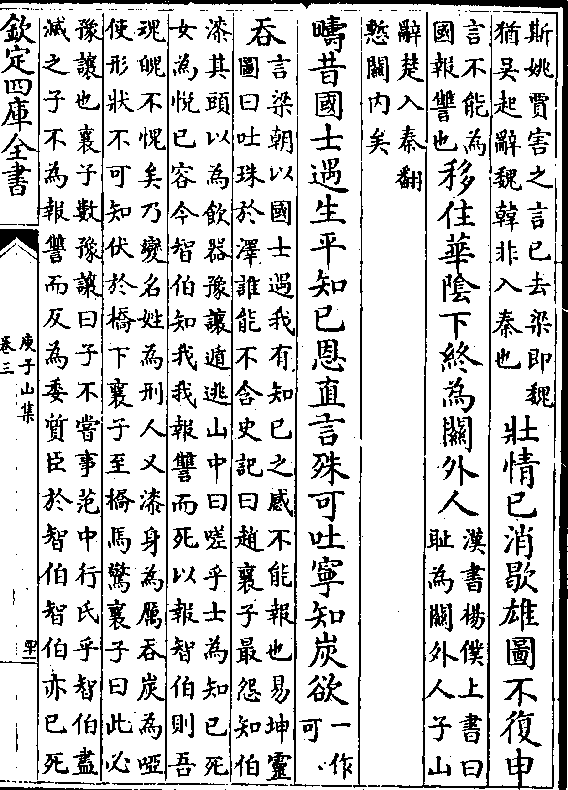 斯姚賈害之言已去梁即魏
猶吳起辭魏韓非入秦也
壯情已消歇雄圖不復申
言不能為
國報讐也
移住華陰下終為關外人
漢書楊僕上書曰
耻為關外人子山
辭楚入秦翻
慙關内矣
疇昔國士遇生平知已恩直言殊可吐寧知炭欲
一作
可
吞
言梁朝以國士遇我有知已之感不能報也易坤靈
圖曰吐珠於澤誰能不含史記曰趙襄子最怨知伯
漆其頭以為飲器豫讓遁逃山中曰嗟乎士為知已死
女為悅已容今智伯知我我報讐而死以報智伯則吾
瑰魄不愧矣乃變名姓為刑人又漆身為厲吞炭為啞
使形狀不可知伏於橋下襄子至橋馬驚襄子曰此必
豫讓也襄子數豫讓曰子不嘗事范中行氏乎智伯盡
滅之子不為報讐而反為委質臣於智伯智伯亦已死
欽定四庫全書
庾子山集
卷三